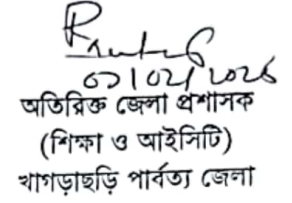 ০১/০২/২০২৬
অতিরিক্ত জেলা প্রশাসক
(শিক্ষা ও আইসিটি)
খাগড়াছড়ি পার্বত্য জেলা